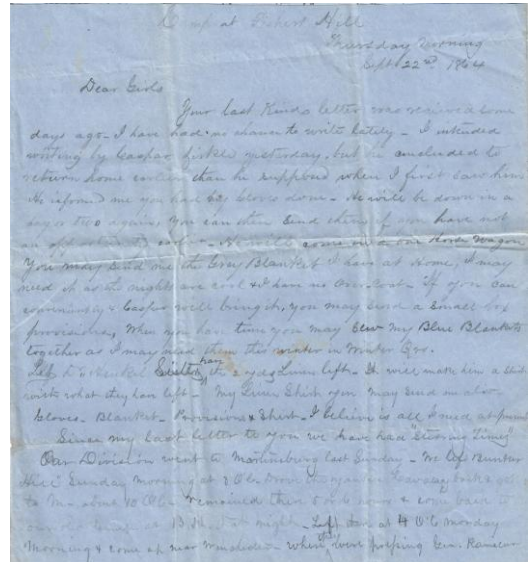 Camp at Fishers Hill
Thursday Morning
Sept 22nd 1864
Dear Girls
Your last Kind letter was received some
days ago - I have had no chance to write lately - I intended
writing by Caspar yesterday, but he concluded to
return home earlier than he supposed when I first saw him
He informed me you had Gloves down - He will be down in a
day or two again, you can then send them if you have not
an opportunity - He will come in our wagon
You may send me the Grey Blanket I have at Home, I may
need it as the nights are cool & I have no Over Coat - If you can
conveniently & Caspar will bring it, you may send a small box
provisions, When you have time you may Sew my Blue Blankets
together as I may need them this winter in Winter Qrs.
the 2 yds Linen left - It will make him a Shirt
with what they have left - My Linen Shirt you may send me also
Gloves - Blanket - Provisions & Shirt - I believe is all I need at present
Since my last letter to you we have had "Stirring Times"
Our Division went to Martinsburg last Sunday - We left Bunker
Hill Sunday morning at
to M. about 10 Olk remained there 5 or 6 hours & come back to
at night - Left there at 4 O'C monday
Morning & come up near - where they were Genl Ramseur